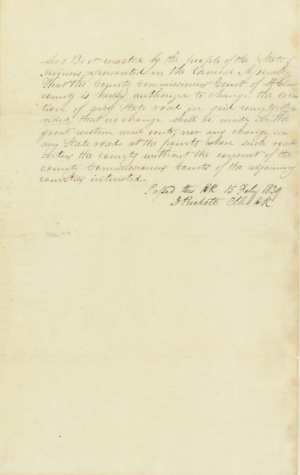 Sec 1 Be it enacted by the people of the State of
Illinois, represented in the General Assembly
That the County Commissioners Court of
county is hereby authorized to change the loca
tion of any State road in said county. Pro
vided, that no change shall be made in the
great western mail route, nor any change in
any State road at the points when such road
enters the county without the consent of the
county Commissioners Courts of the adjoining
counties interested.
Passed the HR 15 Feby 1839
D Prickett Clk HR